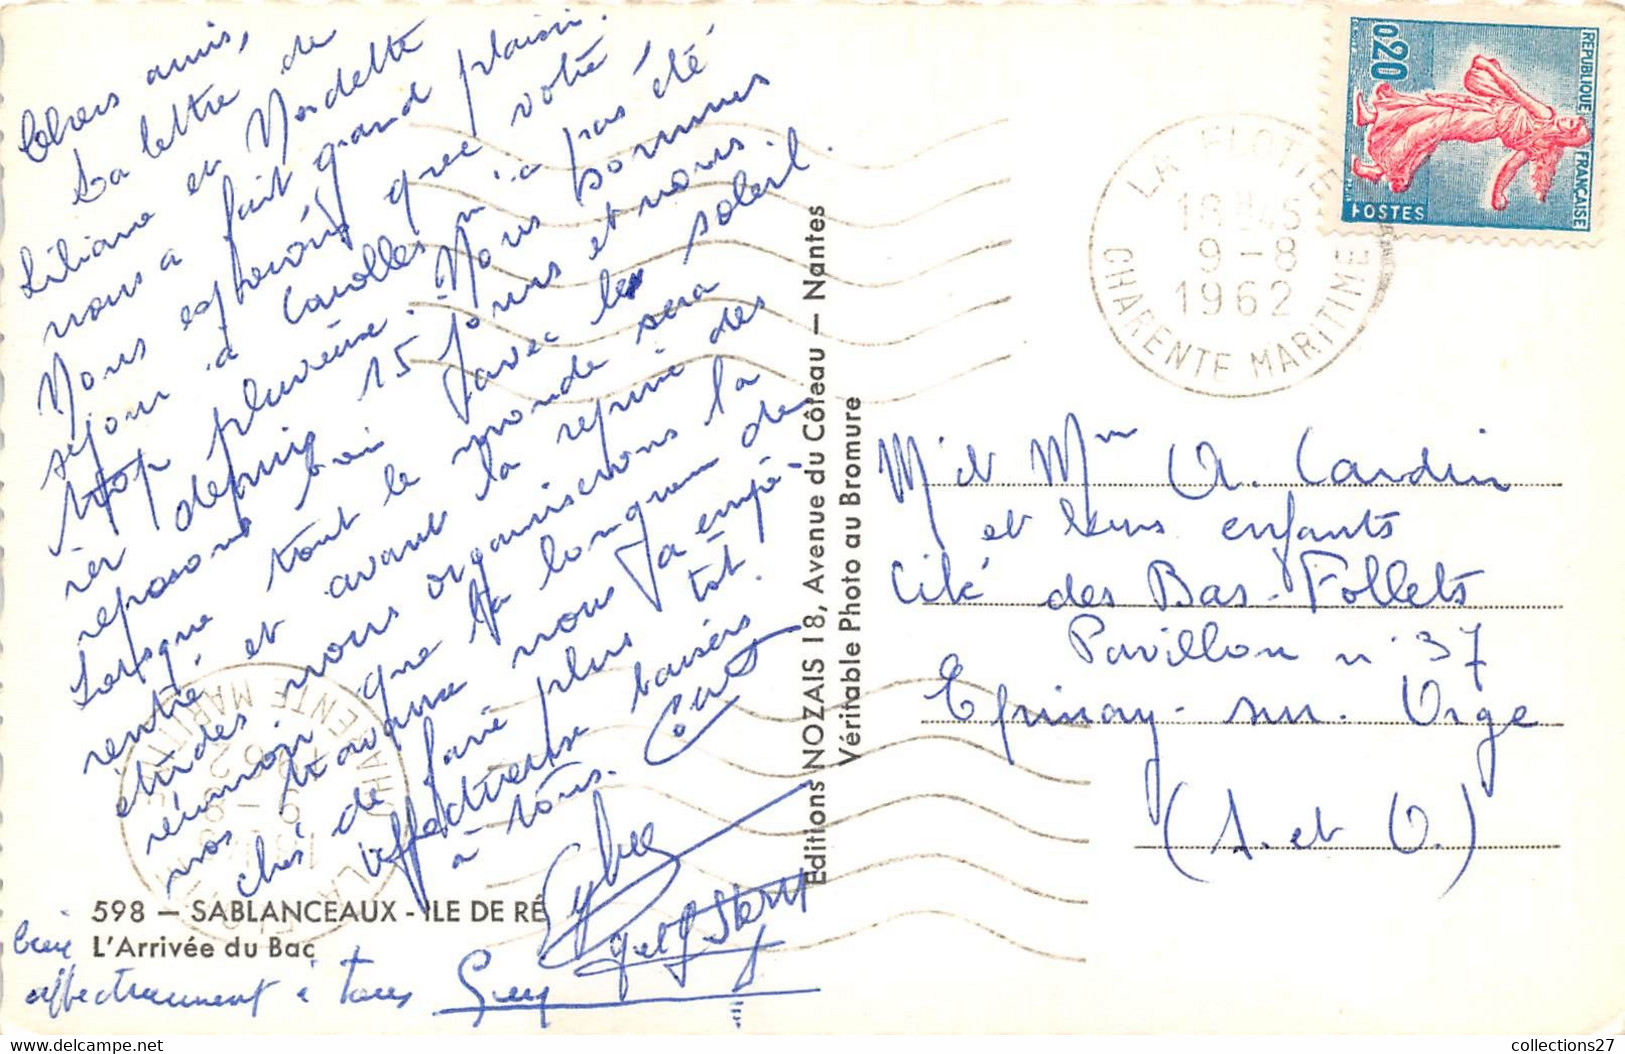 Chers amis,
La lettre de
Liliane et Mordette
nous a fait grand plaisir.
Nous espérons que votre
séjour à Carolles n'a pas été
trop pluvieux. Nous sommes
rér depuis 15 jours et nous
reposons bien avec le soleil.
Lorsque tout le monde sera
rentré et avant la reprise des
études, nous organiserons la
réunion que la longueur de
nos travaux nous a empê-
ché de faire plus tôt.
Affectueux baisers
à tous.
bien
affectueusement à tous Guy
598 — SABLANCEAUX - ILE DE RÉ
L'Arrivée du Bac
Editions NOZAIS 18, Avenue du Côteau — Nantes
Véritable Photo au Bromure
REPUBLIQUE FRANÇAISE
0,20
POSTES
LA FLOTTE
18H45
9-8
1962
CHARENTE MARITIME
M et Mm A. Cardin
et leurs enfants
Cité des Bas-Follets
Pavillon n° 37
Epinay-sur-Orge
(S. et O.)
collections27